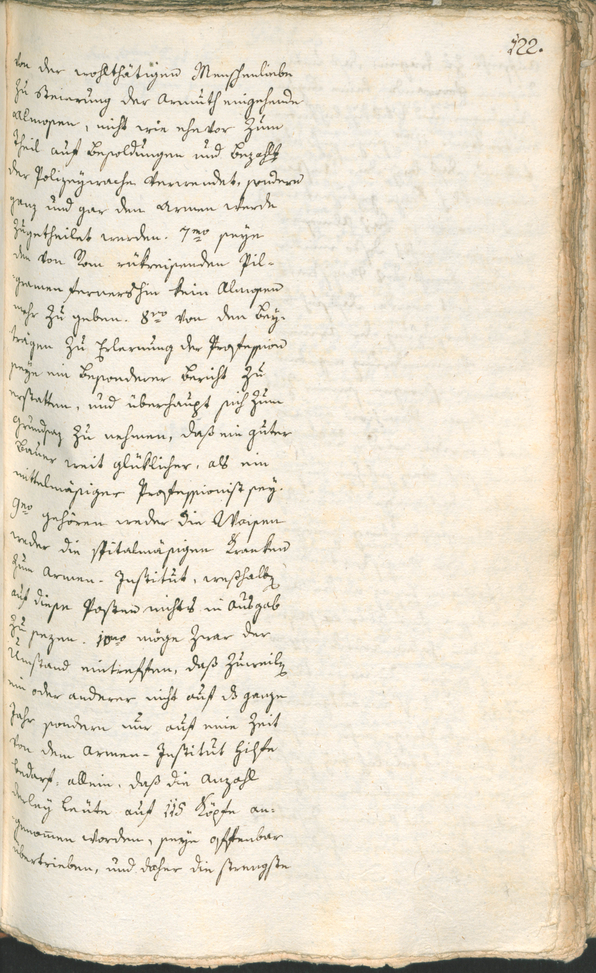 122.
von der wohlthätigen Menschenliebe
zu Steierung der Armuth eingehende
Almosen, nicht wie ehevor zum
Theil auf Besoldungen und Bezahlg
der Polizeywache verwendet, sondern
ganz und gar den Armen werde
zugetheilet werden. 7mo seye
den von Rom rükreisenden Pil-
gramen fernershin kein Almosen
mehr zu geben. 8vo von den Bey-
trägen zu Erlernung der Profession
seye ein besonderer Bericht zu
erstatten, und überhaupt sich zum
Grundsaz zu nehmen, daß ein guter
Bauer weit glüklicher, als ein
mittelmäsiger Professionist sey.
9no gehören weder die Waisen
weder die spitalmäsigen Kranken
zum Armen-Institut, weßhalb
auf diese Posten nichts in Ausgab
zu sezen. 10mo möge zwar der
Umstand eintreffen, daß zuweiln
ein oder anderer nicht auf ds ganze
Jahr sondern nur auf eine Zeit
von dem Armen-Institut Hilfe
bedarf, allein, daß die Anzahl
derley Leute auf 115 Köpfe an-
genommen worden, seye offenbar
übertrieben, und daher die strengste